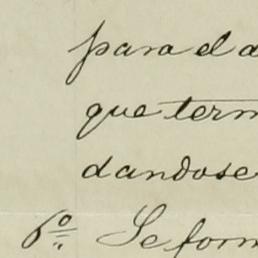 para el a
que term
dandose
6º Se form